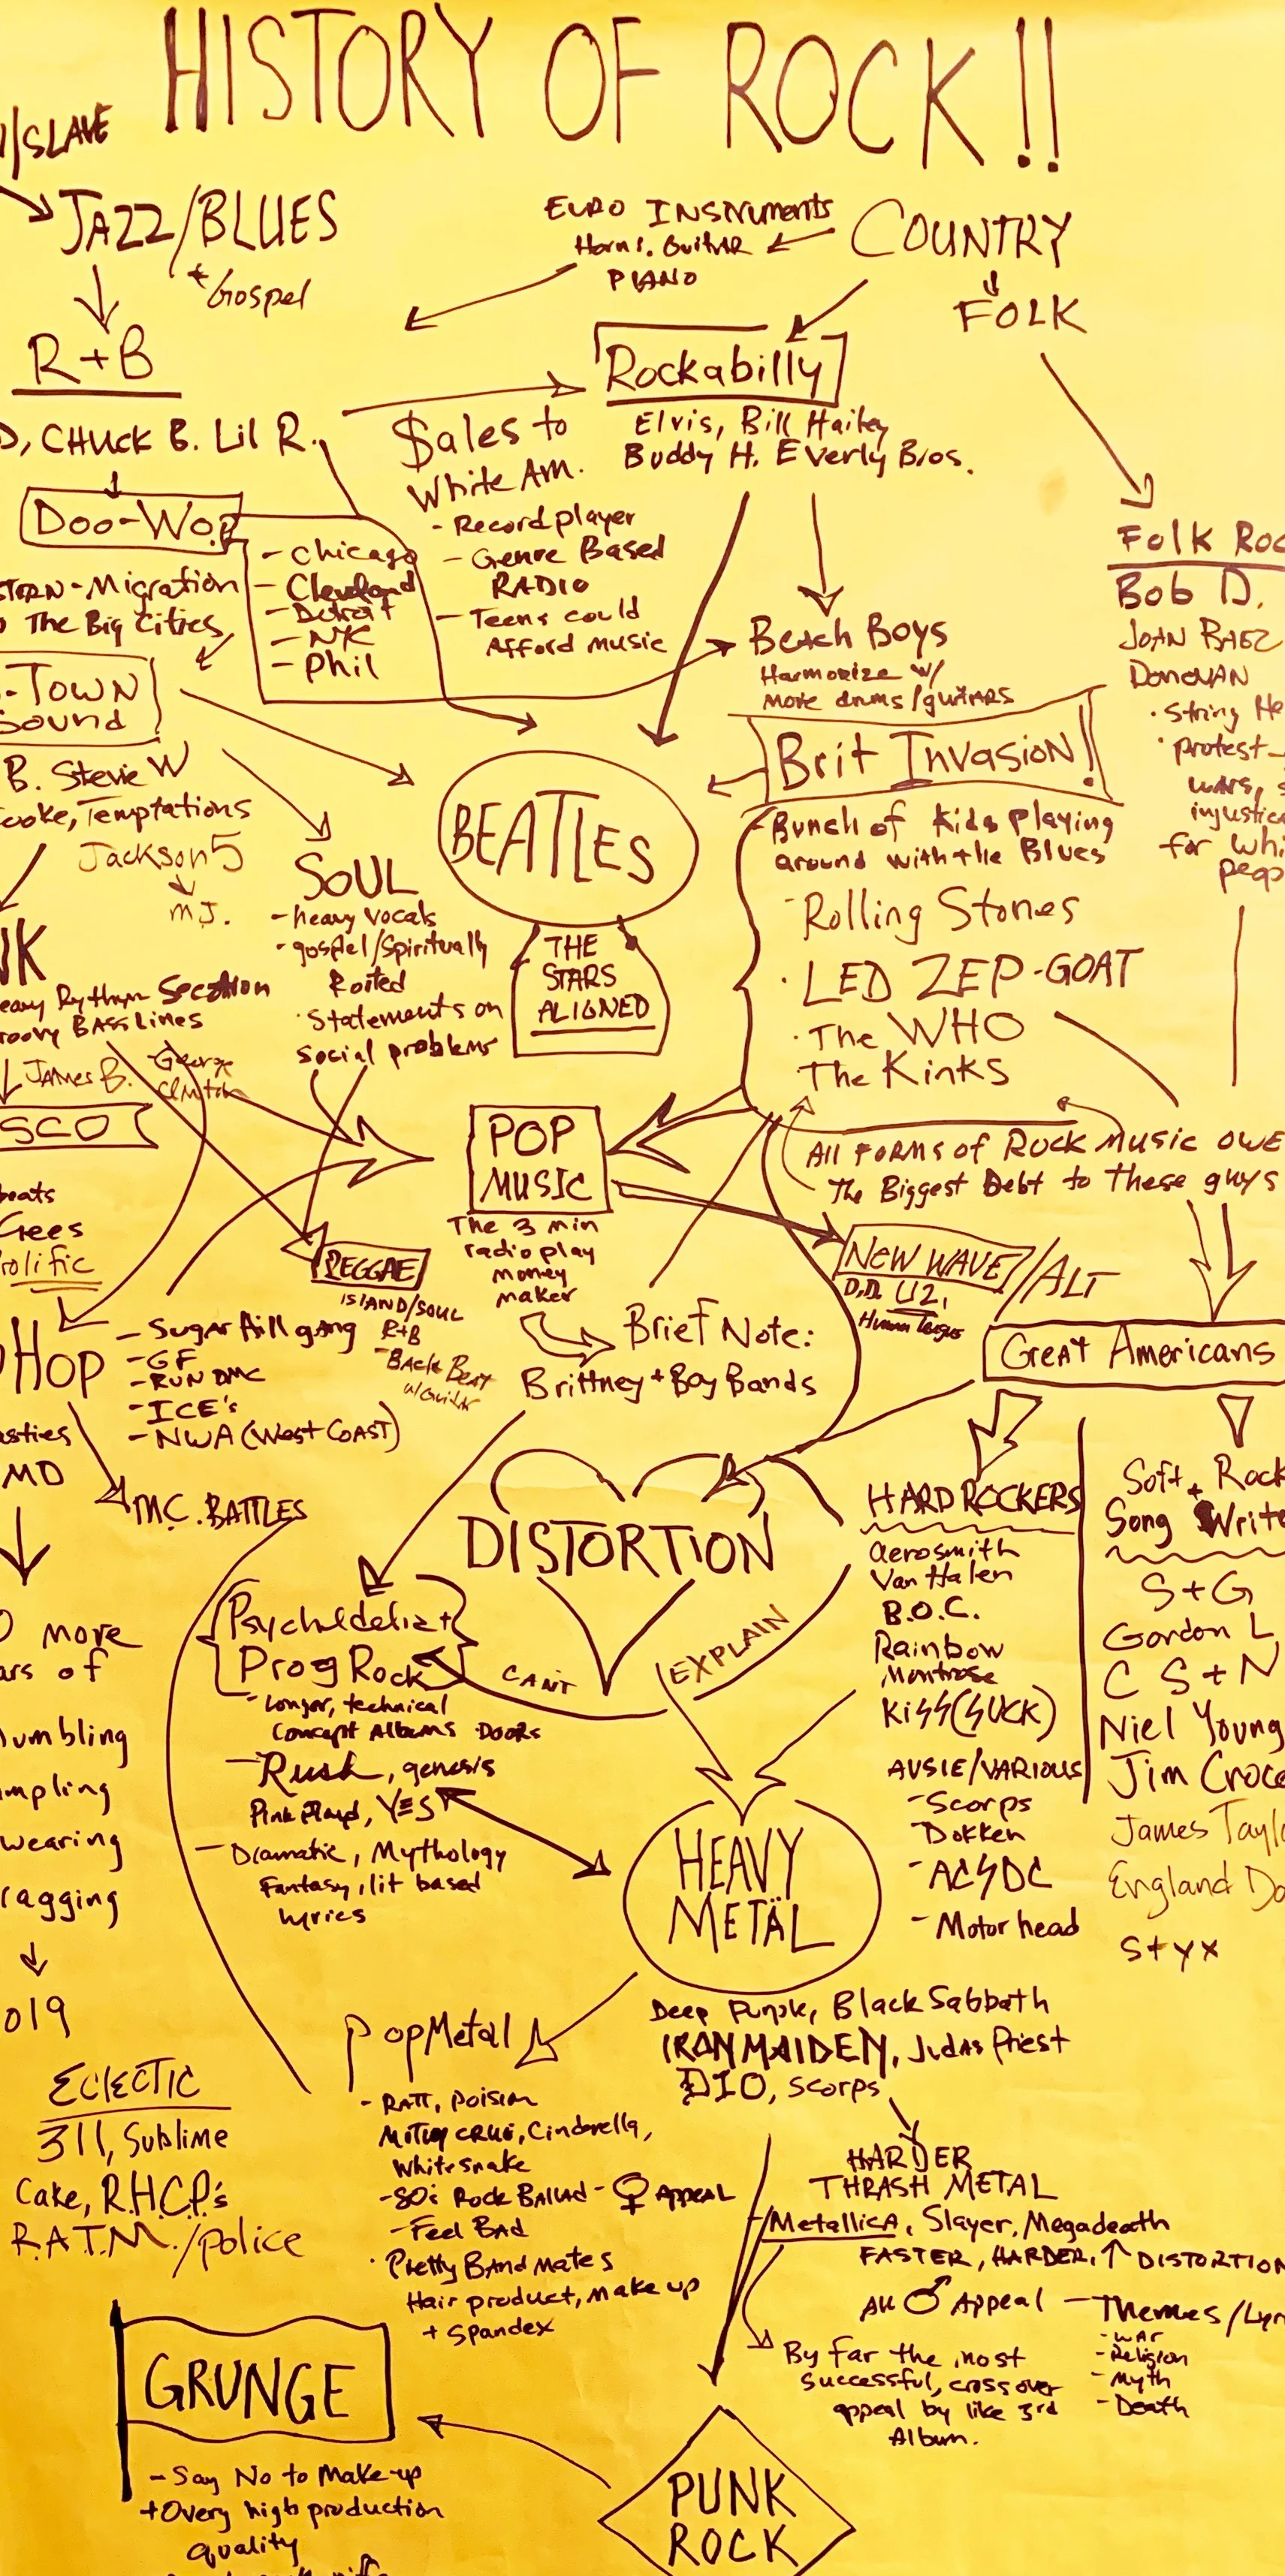 HISTORY OF ROCK!!
/SLAVE
JAZZ/BLUES
+ Gospel
EURO INSTruments
Horns. GuitAR
PIANO
COUNTRY
FOLK
R+B
D, CHUCK B. Lil R.
$ales to
White Am.
- Record player
- Genre Based
RADIO
- Teens could
Afford music
Rockabilly
Elvis, Bill Hailey
Buddy H. Everly Bros.
Doo-Wop
STERN-Migration
The Big Cities
- Chicago
- Cleveland
- Detroit
- NYC
- Phil
Beach Boys
Harmonize w/
More drums/guitars
Folk Roc
Bob D.
JOAN BAEZ
DONOVAN
· String He
· protest
wars, s
injustice
for whi
peop
-TOWN
Sound
B. Stevie W
Cooke, Temptations
Jackson 5
M.J.
BEATLES
THE
STARS
ALIGNED
Brit Invasion!
Bunch of Kids playing
around with the Blues
- Rolling Stones
· LED ZEP-GOAT
· The WHO
· The Kinks
SOUL
- heavy vocals
- gospel/Spiritually
Rooted
· Statements on
social problems
NK
eavy Rythym Section
roovy BASS Lines
JAMES B.
George
Clinton
SCO
beats
Gees
rolific
POP
MUSIC
The 3 min
radio play
money
maker
All FORMS of Rock Music owe
The Biggest Debt to These guys
REGGAE
ISLAND/SOUL
R+B
- BACK Beat
w/Guitar
NEW WAVE/ALT
D.D. U2,
Human League
Brief Note:
Brittney + Boy Bands
Great Americans
HOP
- Sugar Hill gang
- GF
- RUN DMC
- ICE's
- NWA (West COAST)
asties
MD
M.C. BATTLES
DISTORTION
CAN'T
EXPLAIN
HARD ROCKERS
Aerosmith
Van Halen
B.O.C.
Rainbow
Montrose
KISS (SUCK)
AUSIE/VARIOUS
- Scorps
- Dokken
- AC/DC
- Motorhead
Soft + Rock
Song Write
S+G
Gordon L
C S+N
Niel Young
Jim Croce
James Taylo
England Da
Styx
Psychedelia +
Prog Rock
- Longer, technical
Concept Albums Doors
- Rush, genesis
Pink Floyd, YES
- Dramatic, Mythology
Fantasy, lit based
lyrics
more
ars of
umbling
mpling
wearing
ragging
019
HEAVY
METÄL
Deep Purple, Black Sabbath
IRON MAIDEN, Judas Priest
DIO, Scorps
Pop Metal
- RATT, Poision
Motley CRUE, Cinderella,
Whitesnake
- 80's Rock Ballad - ♀ Appeal
- Feel Bad
· Pretty Band mates
Hair product, Make up
+ Spandex
ECLECTIC
311, Sublime
Cake, R.H.C.P.'s
R.A.T.M./police
HARDER
THRASH METAL
Metallica, Slayer, Megadeath
FASTER, HARDER, ↑ DISTORTION
All ♂ Appeal
- Themes/Lyr
- WAR
- Religion
- Myth
- Death
By far the most
successful, crossover
appeal by like 3rd
Album.
GRUNGE
- Say No to Make-up
+ Overy high production
quality
PUNK
ROCK